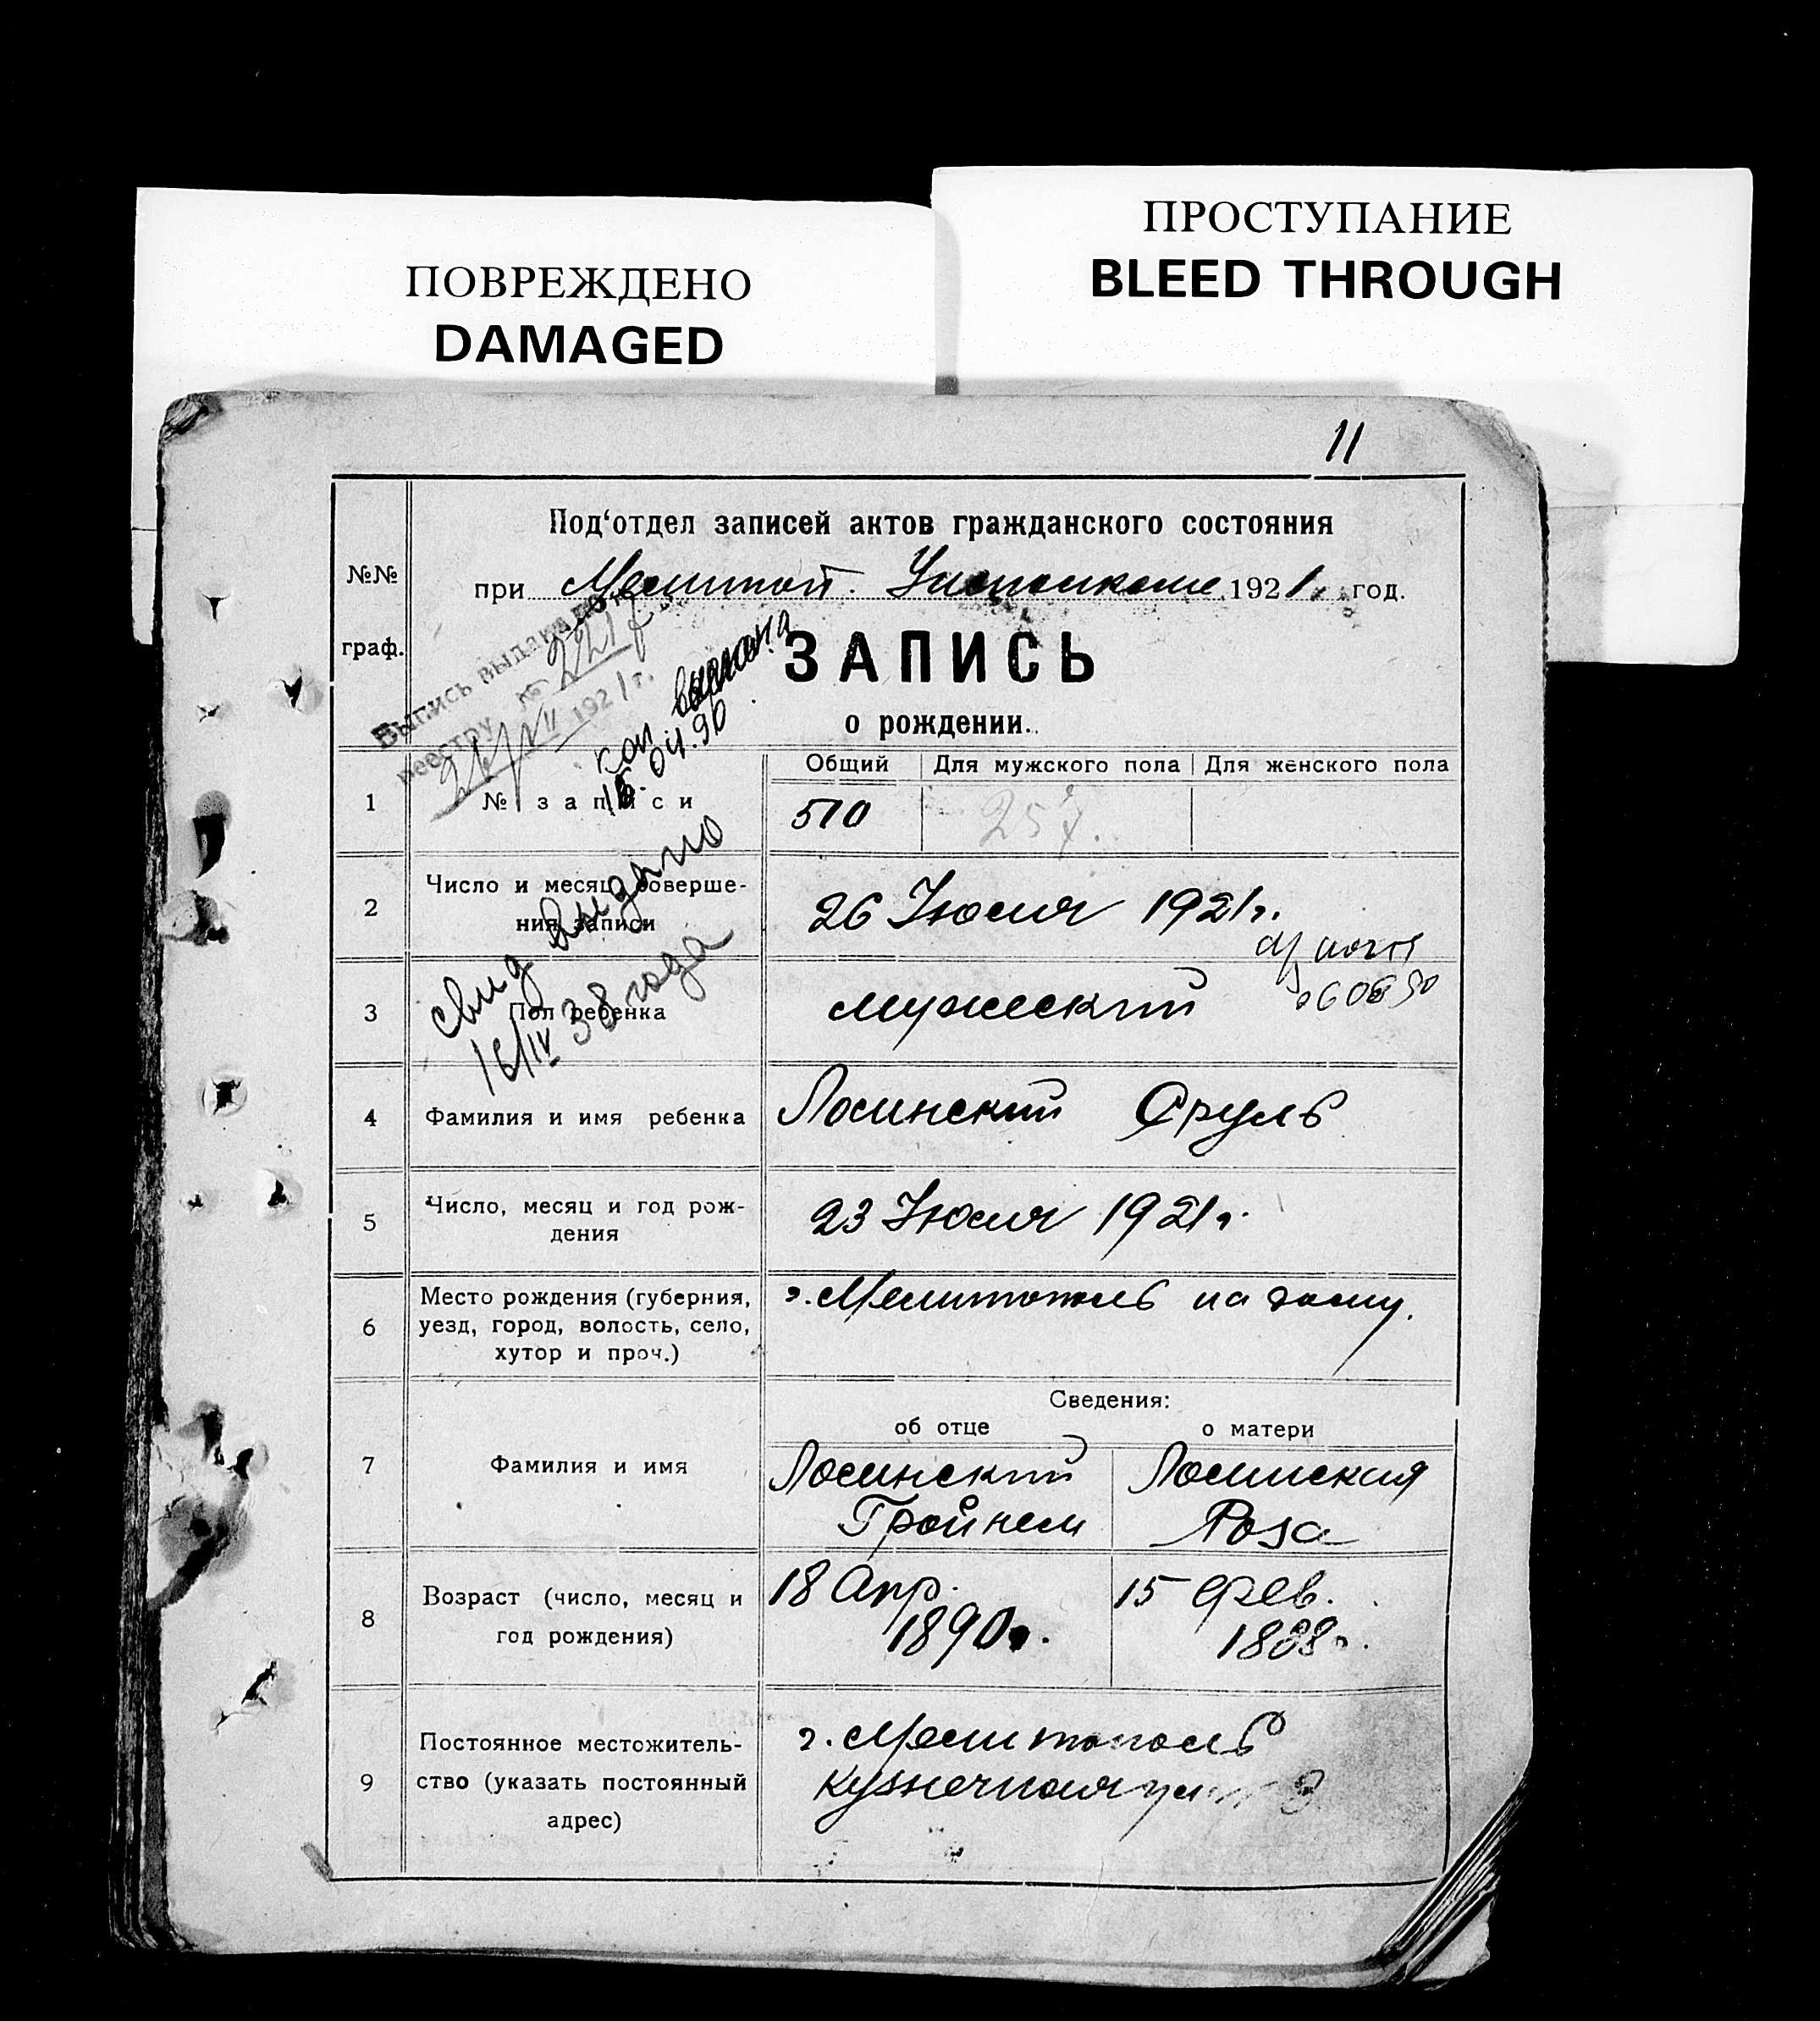 ПРОСТУПАНИЕ
BLEED THROUGH
ПОВРЕЖДЕНО
DAMAGED
11
Под'отдел записей актов гражданского состояния
при Мелитоп. 1921 год.
№№
граф.
ЗАПИСЬ
о рождении.
Выпись выдана по
реестру № 2217
1921 г.
коп выдана
04.90
Общий Для мужского пола Для женского пола
1 № записи 510 257.
2 Число и месяц соверше-
ния записи
26 Июля 1921г.
свид выдано
16/IV 38 года
3 Пол ребенка мужеский
4 Фамилия и имя ребенка Лосинский Сруль
5 Число, месяц и год рож-
дения
23 Июля 1921г.
6 Место рождения (губерния,
уезд, город, волость, село,
хутор и проч.)
г. Мелитополь на дому.
Сведения:
об отце о матери
7 Фамилия и имя
Лосинский
Гройнем
Лосинская
Роза
8 Возраст (число, месяц и
год рождения)
18 Апр.
1890г.
15 фев.
1888г.
9 Постоянное местожитель-
ство (указать постоянный
адрес)
г. Мелитополь
Кузнечная ул